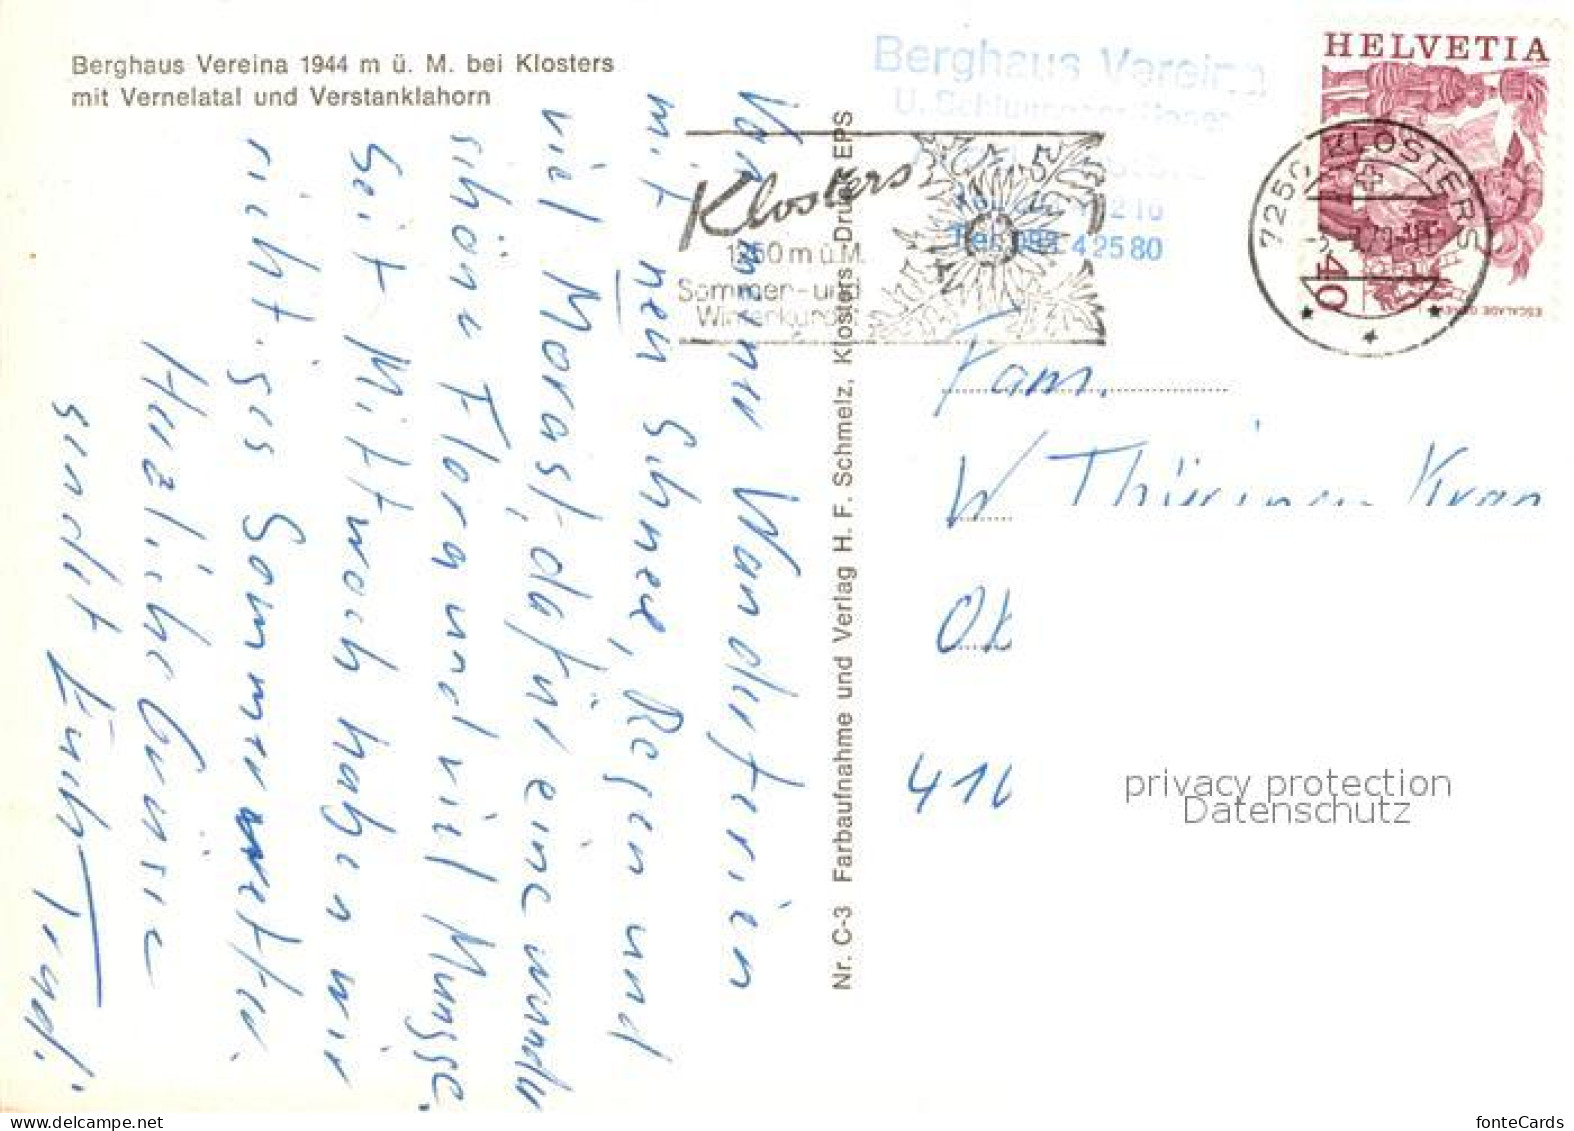 Berghaus Vereina 1944 m ü. M. bei Klosters
mit Vernelatal und Verstanklahorn
Von meinen Wanderferien
mit nen Schnee, Regen und
viel Morast, dafür eine wunder
schöne Flora und viel Mungge.
Seit Mittwoch haben wir
richtiges Sommerwetter.
Herzliche Grüsse
sendet Euch Trudi
Nr. C-3 Farbaufnahme und Verlag H. F. Schmelz, Klosters Druck EPS
Berghaus Vereina
Tel. 083 4 25 80
Klosters
1250 m ü. M.
Sommer- und
Winterkurort
HELVETIA
40
ESCALADE GENÈVE
7250 KLOSTERS
Fam.
W Thüringer
Ok
416
privacy protection
Datenschutz
fonteCards